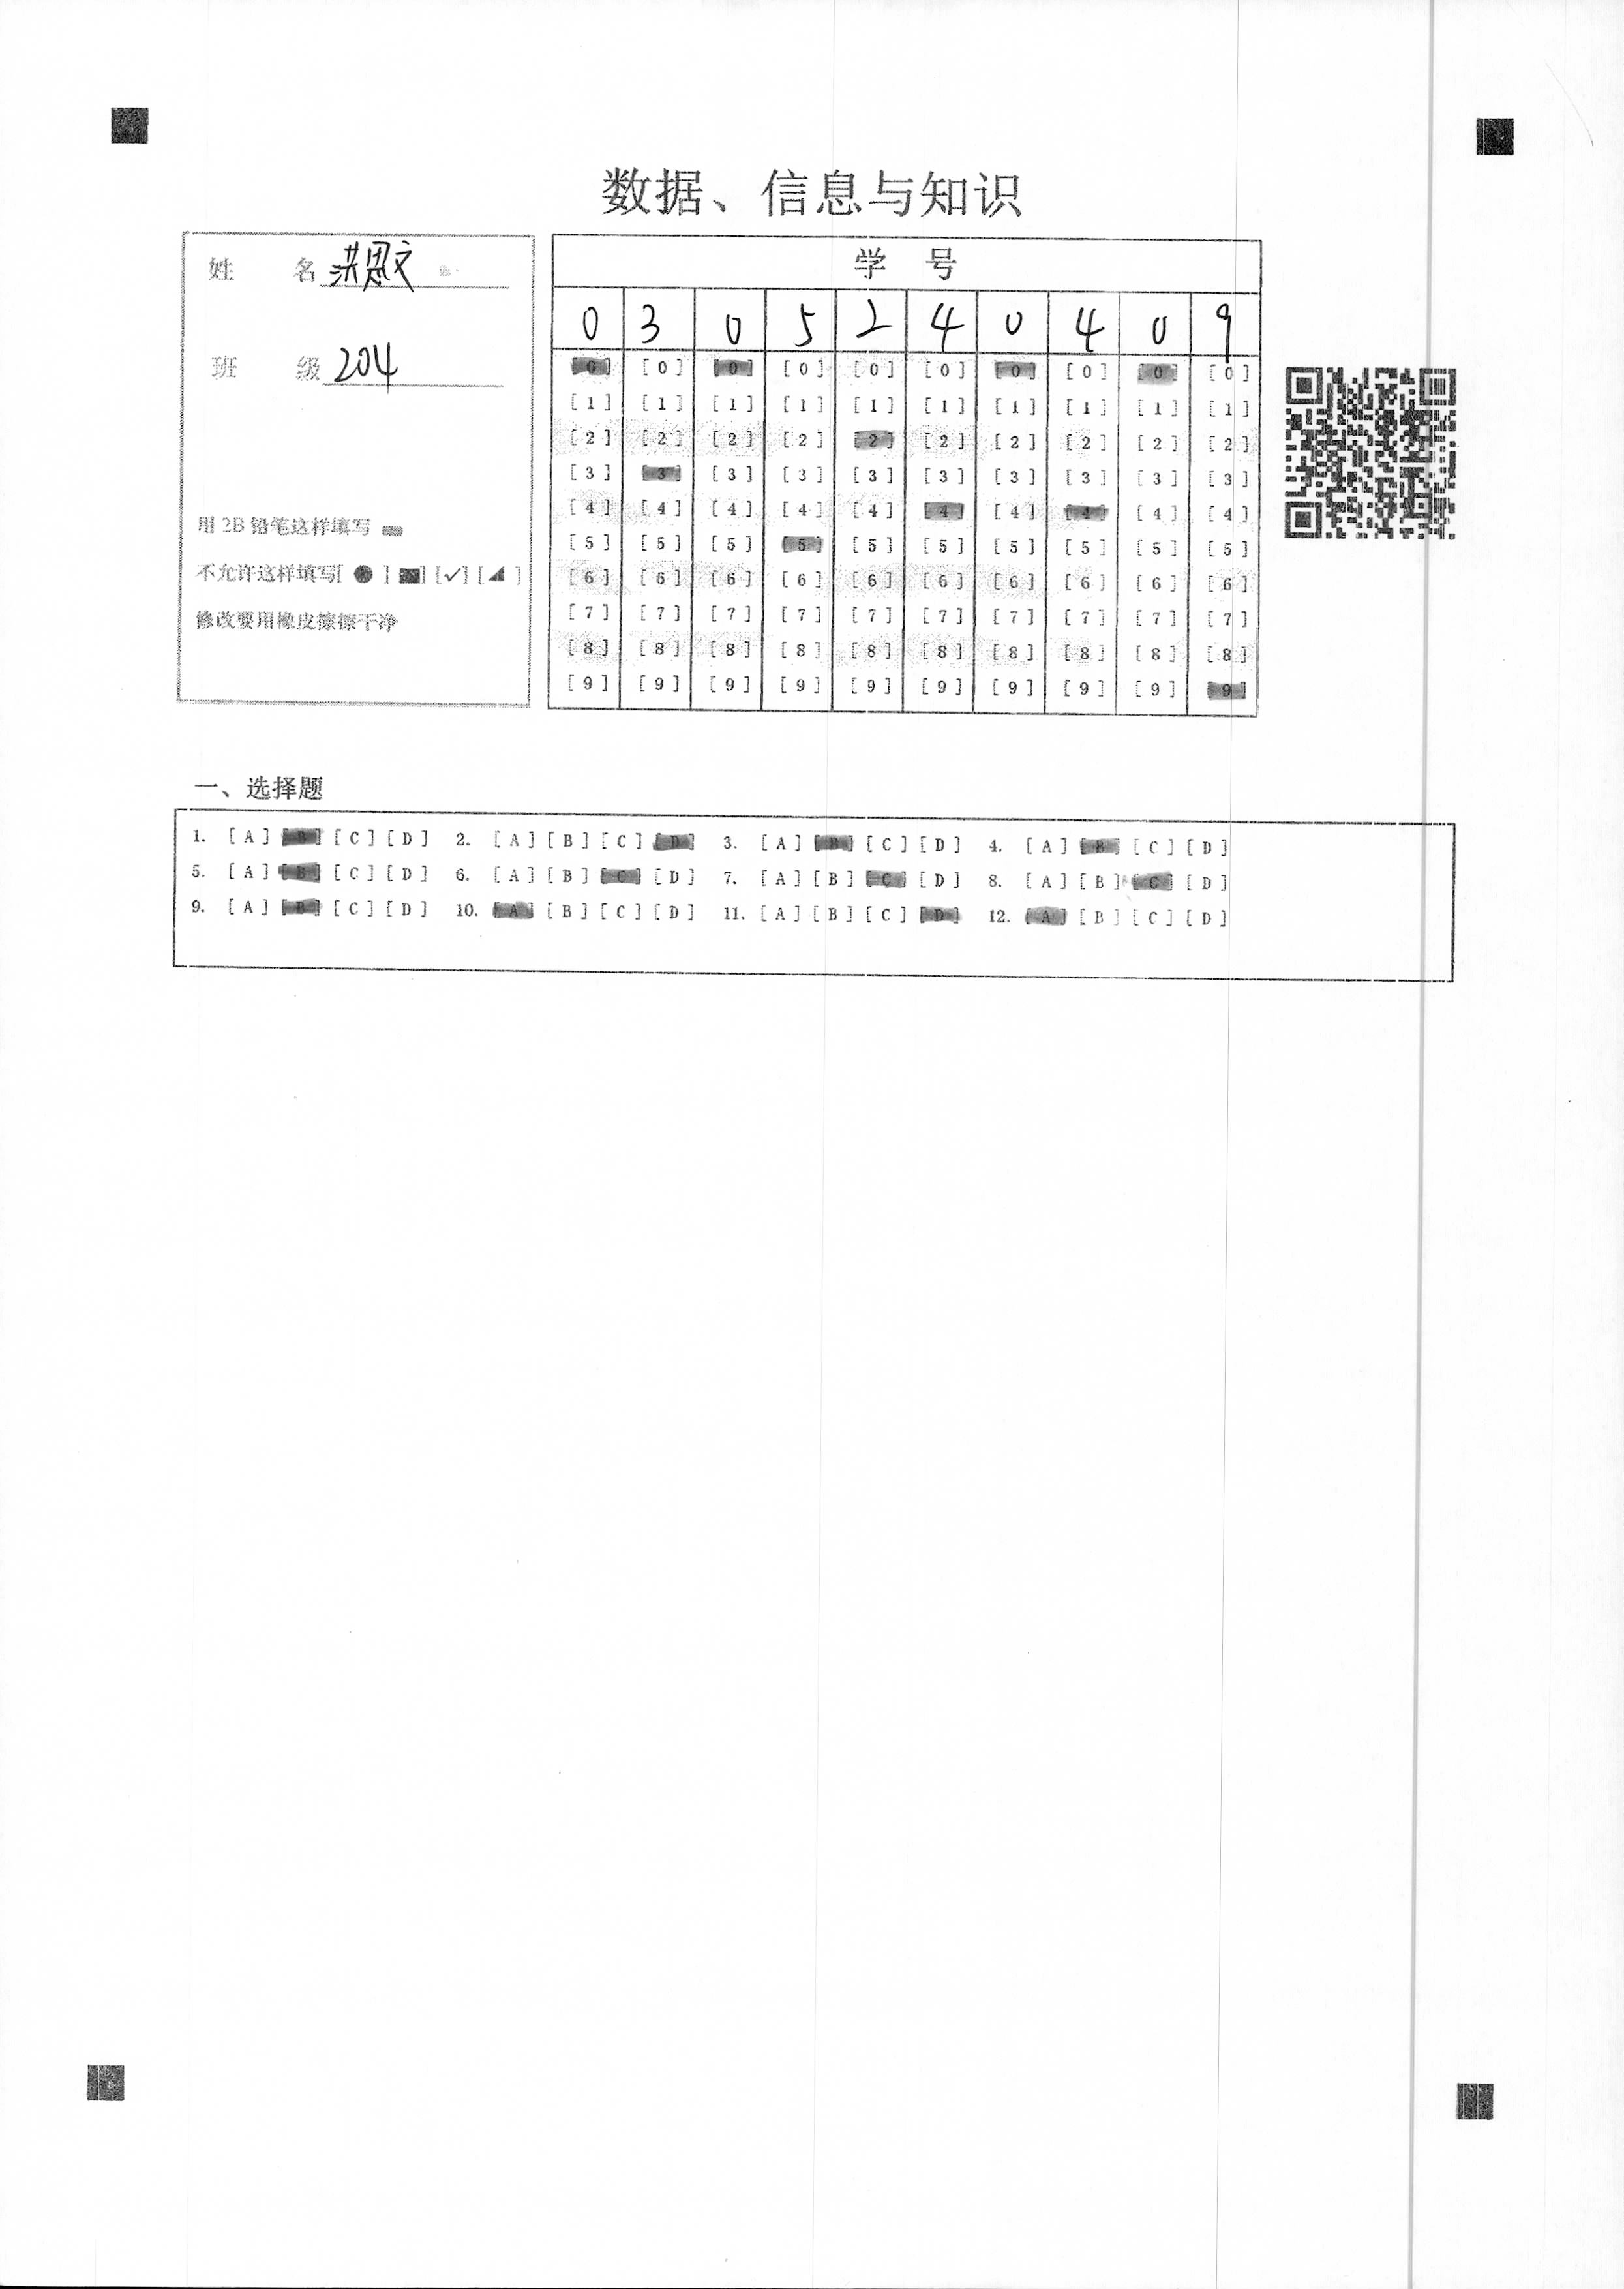 数据、信息与知识
姓 名 洪思文
班 级 204
用 2B 铅笔这样填写
不允许这样填写[ ● ] [■] [✓] [◢ ]
修改要用橡皮擦擦干净
学 号
0 3 0 5 2 4 0 4 0 9
[0] [0] [0] [0] [0] [0] [0] [0] [0] [0]
[1] [1] [1] [1] [1] [1] [1] [1] [1] [1]
[2] [2] [2] [2] [2] [2] [2] [2] [2] [2]
[3] [3] [3] [3] [3] [3] [3] [3] [3] [3]
[4] [4] [4] [4] [4] [4] [4] [4] [4] [4]
[5] [5] [5] [5] [5] [5] [5] [5] [5] [5]
[6] [6] [6] [6] [6] [6] [6] [6] [6] [6]
[7] [7] [7] [7] [7] [7] [7] [7] [7] [7]
[8] [8] [8] [8] [8] [8] [8] [8] [8] [8]
[9] [9] [9] [9] [9] [9] [9] [9] [9] [9]
一、选择题
1. [A] [B] [C] [D] 2. [A] [B] [C] [D] 3. [A] [B] [C] [D] 4. [A] [B] [C] [D]
5. [A] [B] [C] [D] 6. [A] [B] [C] [D] 7. [A] [B] [C] [D] 8. [A] [B] [C] [D]
9. [A] [B] [C] [D] 10. [A] [B] [C] [D] 11. [A] [B] [C] [D] 12. [A] [B] [C] [D]